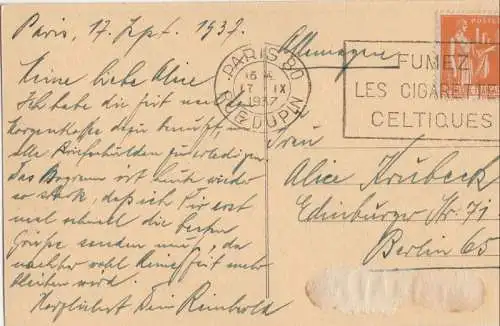 Paris, 17. Sept. 1937.
Meine liebe Alice
Ich habe die frei
alle Briefschulden zu erledigen
Das Programm ist heute wieder
so stark, dass ich Dir erst
mal schnell die besten
Grüsse senden muss, da
nachher wohl keine Zeit mehr
bleiben wird.
Herzlichst Dein Reinhold
Allemagne
PARIS 80
17 IX
1937
R. DUPIN
FUMEZ
LES CIGARETTES
CELTIQUES
Frau
Alice Krubeck
Edinburger Str. 71
Berlin 65